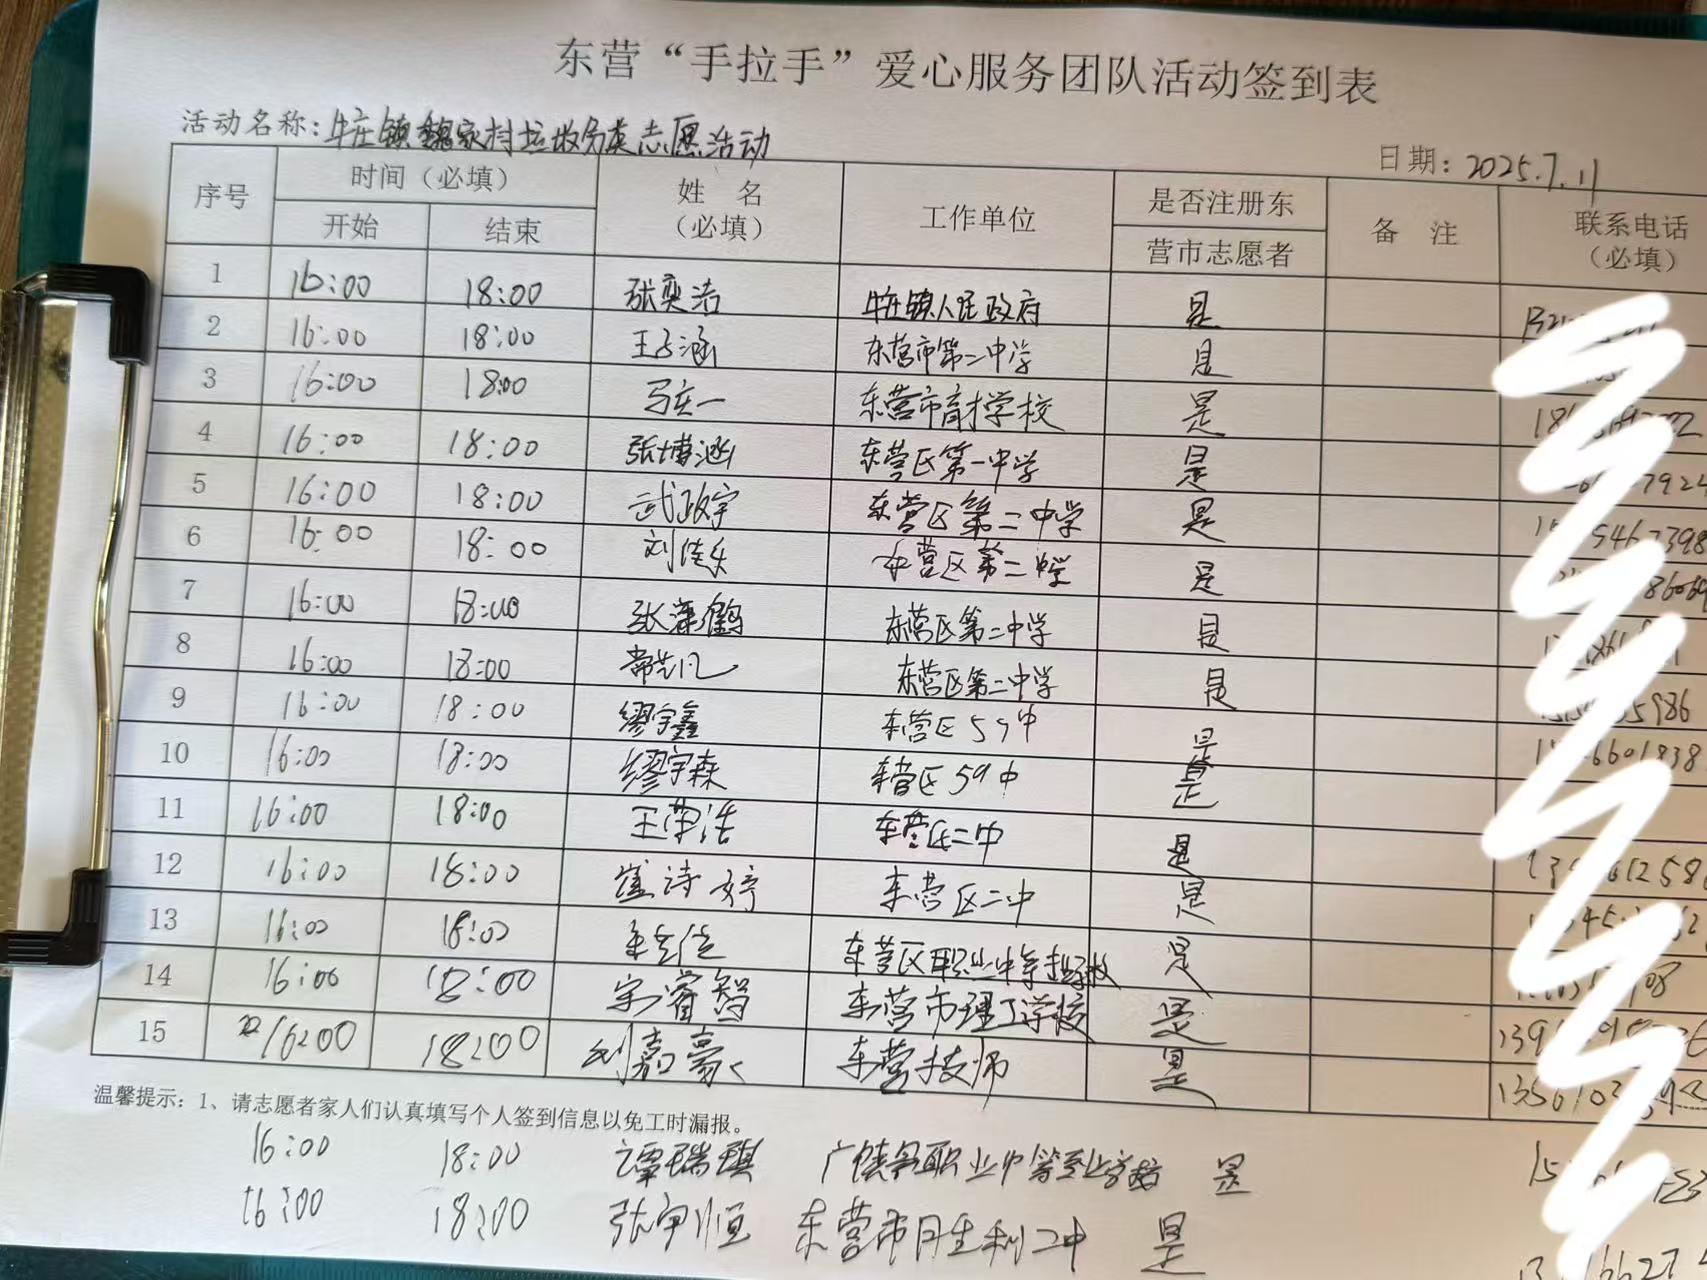 东营“手拉手”爱心服务团队活动签到表
活动名称：牛庄镇魏家村垃圾分类志愿活动
日期：2025.7.11
序号 时间（必填） 姓 名（必填） 工作单位 是否注册东营市志愿者 备 注 联系电话（必填）
开始 结束
1 16:00 18:00 张奕浩 牛庄镇人民政府 是
2 16:00 18:00 王子涵 东营市第二中学 是
3 16:00 18:00 马在一 东营市育才学校 是
4 16:00 18:00 张博涵 东营区第一中学 是
5 16:00 18:00 武政宇 东营区第二中学 是
6 16:00 18:00 刘佳乐 东营区第二中学 是
7 16:00 18:00 张潆鹤 东营区第二中学 是
8 16:00 18:00 常艺凡 东营区第二中学 是
9 16:00 18:00 缪宇鑫 东营区59中 是
10 16:00 18:00 缪宇森 东营区59中 是
11 16:00 18:00 王荣浩 东营区二中 是
12 16:00 18:00 崔诗婷 东营区二中 是
13 16:00 18:00 东营区职业中等 是
14 16:00 18:00 宋睿智 东营市理工学校 是
15 16:00 18:00 刘嘉豪 东营技师 是
温馨提示：1、请志愿者家人们认真填写个人签到信息以免工时漏报。
16:00 18:00 谭瑞琪 广饶县职业中等专业学校 是
16:00 18:00 张宇恒 东营市胜利二中 是